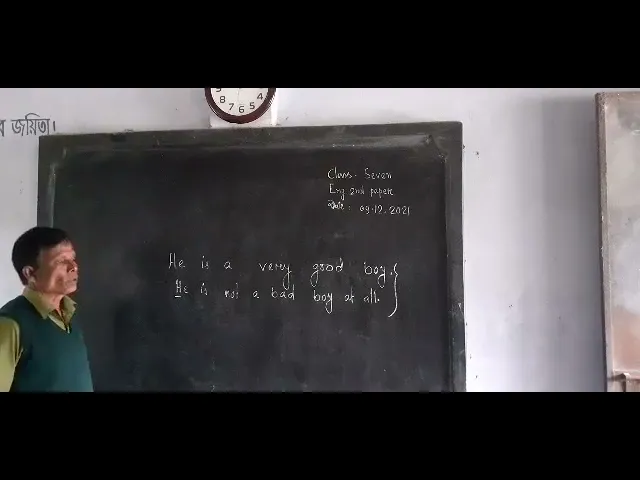 জয়িতা।
9 8 7 6 5 4
Class. Seven
Eng 2nd paper
Date: 09.12.2021
He is a very good boy.
He is not a bad boy at all.